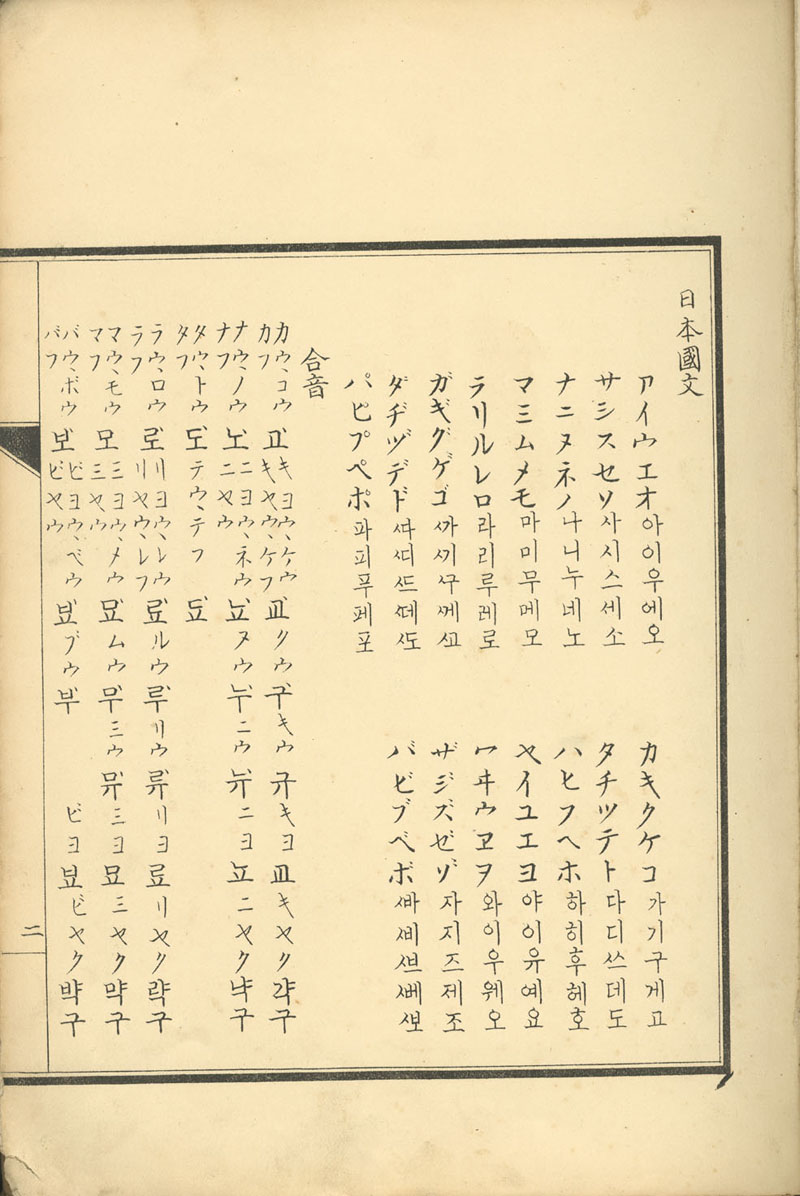 日本國文
アイウエオ 아이우에오 カキクケコ 가기구게고
サシスセソ 사시스세소 タチツテト 다디쓰데도
ナニヌネノ 나니누네노 ハヒフヘホ 하히후헤호
マミムメモ 마미무메모 ヤイユエヨ 야이유예요
ラリルレロ 라리루레로 ワヰウヱヲ 와이우웨오
ガギグゲゴ ᄭᅡᄭᅵᄭᅮᄭᅦᄭᅩ ザジズゼゾ 자지즈제조
ダヂヅデド ᄯᅡᄯᅵᄯᅳᄯᅦᄯᅩ バビブベボ ᄲᅡᄲᅵᄲᅳᄲᅦᄲᅩ
パピプペポ 파피푸페포
合音
カウ、コウ カフ 고 キヨウ、ケウ キヤウ、ケフ 교 クウ 구 キウ 규 キヨ 교 キヤク 갹구
ナウ、ノウ ナフ 노 ニヨウ、ネウ ニヤウ 뇨 ヌウ 누 ニウ 뉴 ニヨ 뇨 ニヤク 냑구
タウ、トウ タフ 도 テウ、テフ 됴
ラウ、ロウ ラフ 로 リヨウ、レウ リヤウ、レフ 료 ルウ 루 リウ 류 リヨ 료 リヤク 략구
マウ、モウ マフ 모 ミヨウ、メウ ミヤウ 묘 ムウ 무 ミウ 뮤 ミヨ 묘 ミヤク 먁구
バウ、ボウ バフ 보 ビヨウ、ベウ ビヤウ 뵤 ブウ 부 ビヨ 뵤 ビヤク 뱍구
二